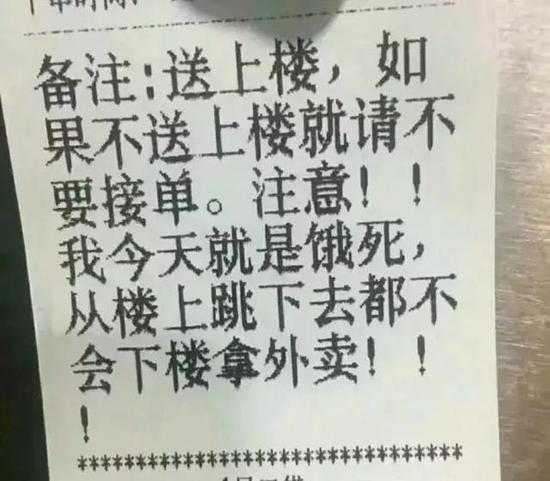 备注:送上楼，如
果不送上楼就请不
要接单。注意！！
我今天就是饿死，
从楼上跳下去都不
会下楼拿外卖！！
！
********************************